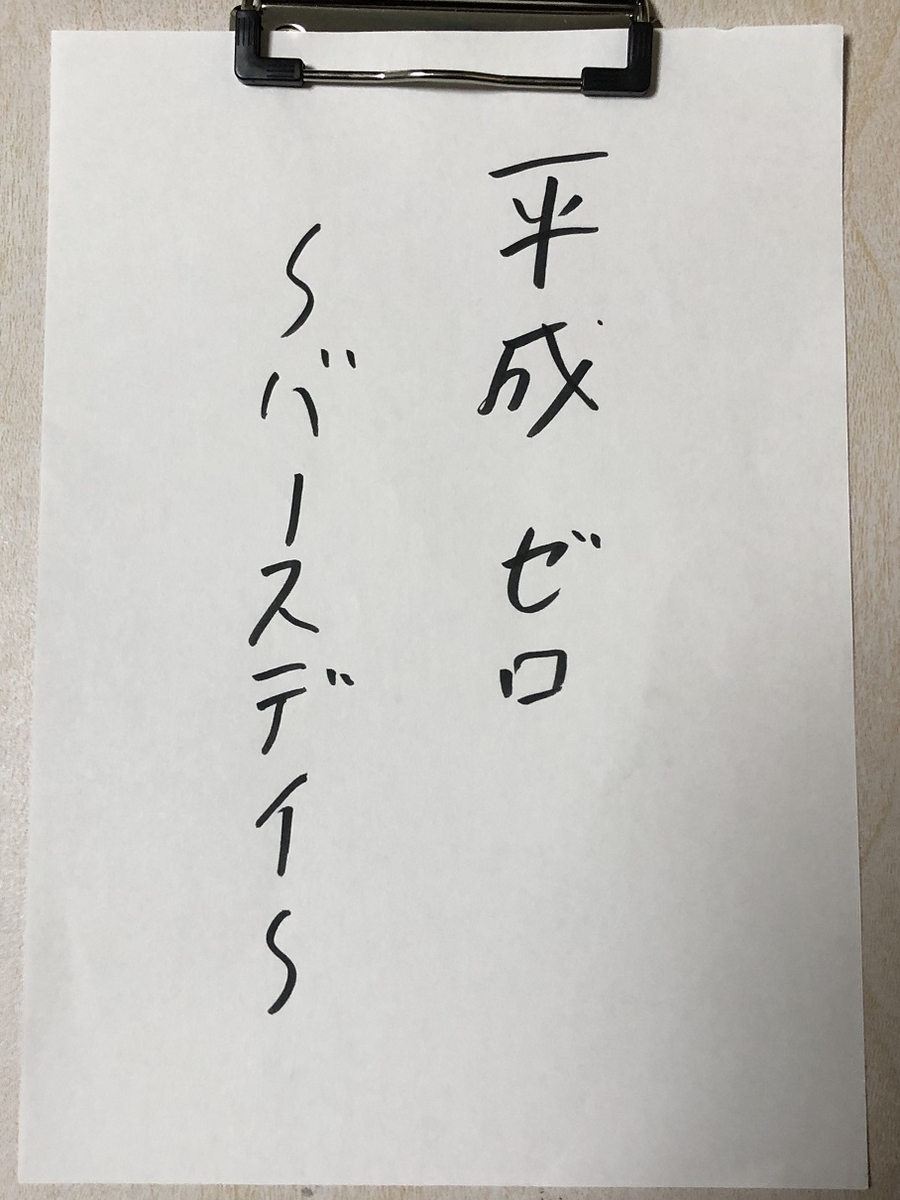 平成 ゼロ
～バースデイ～